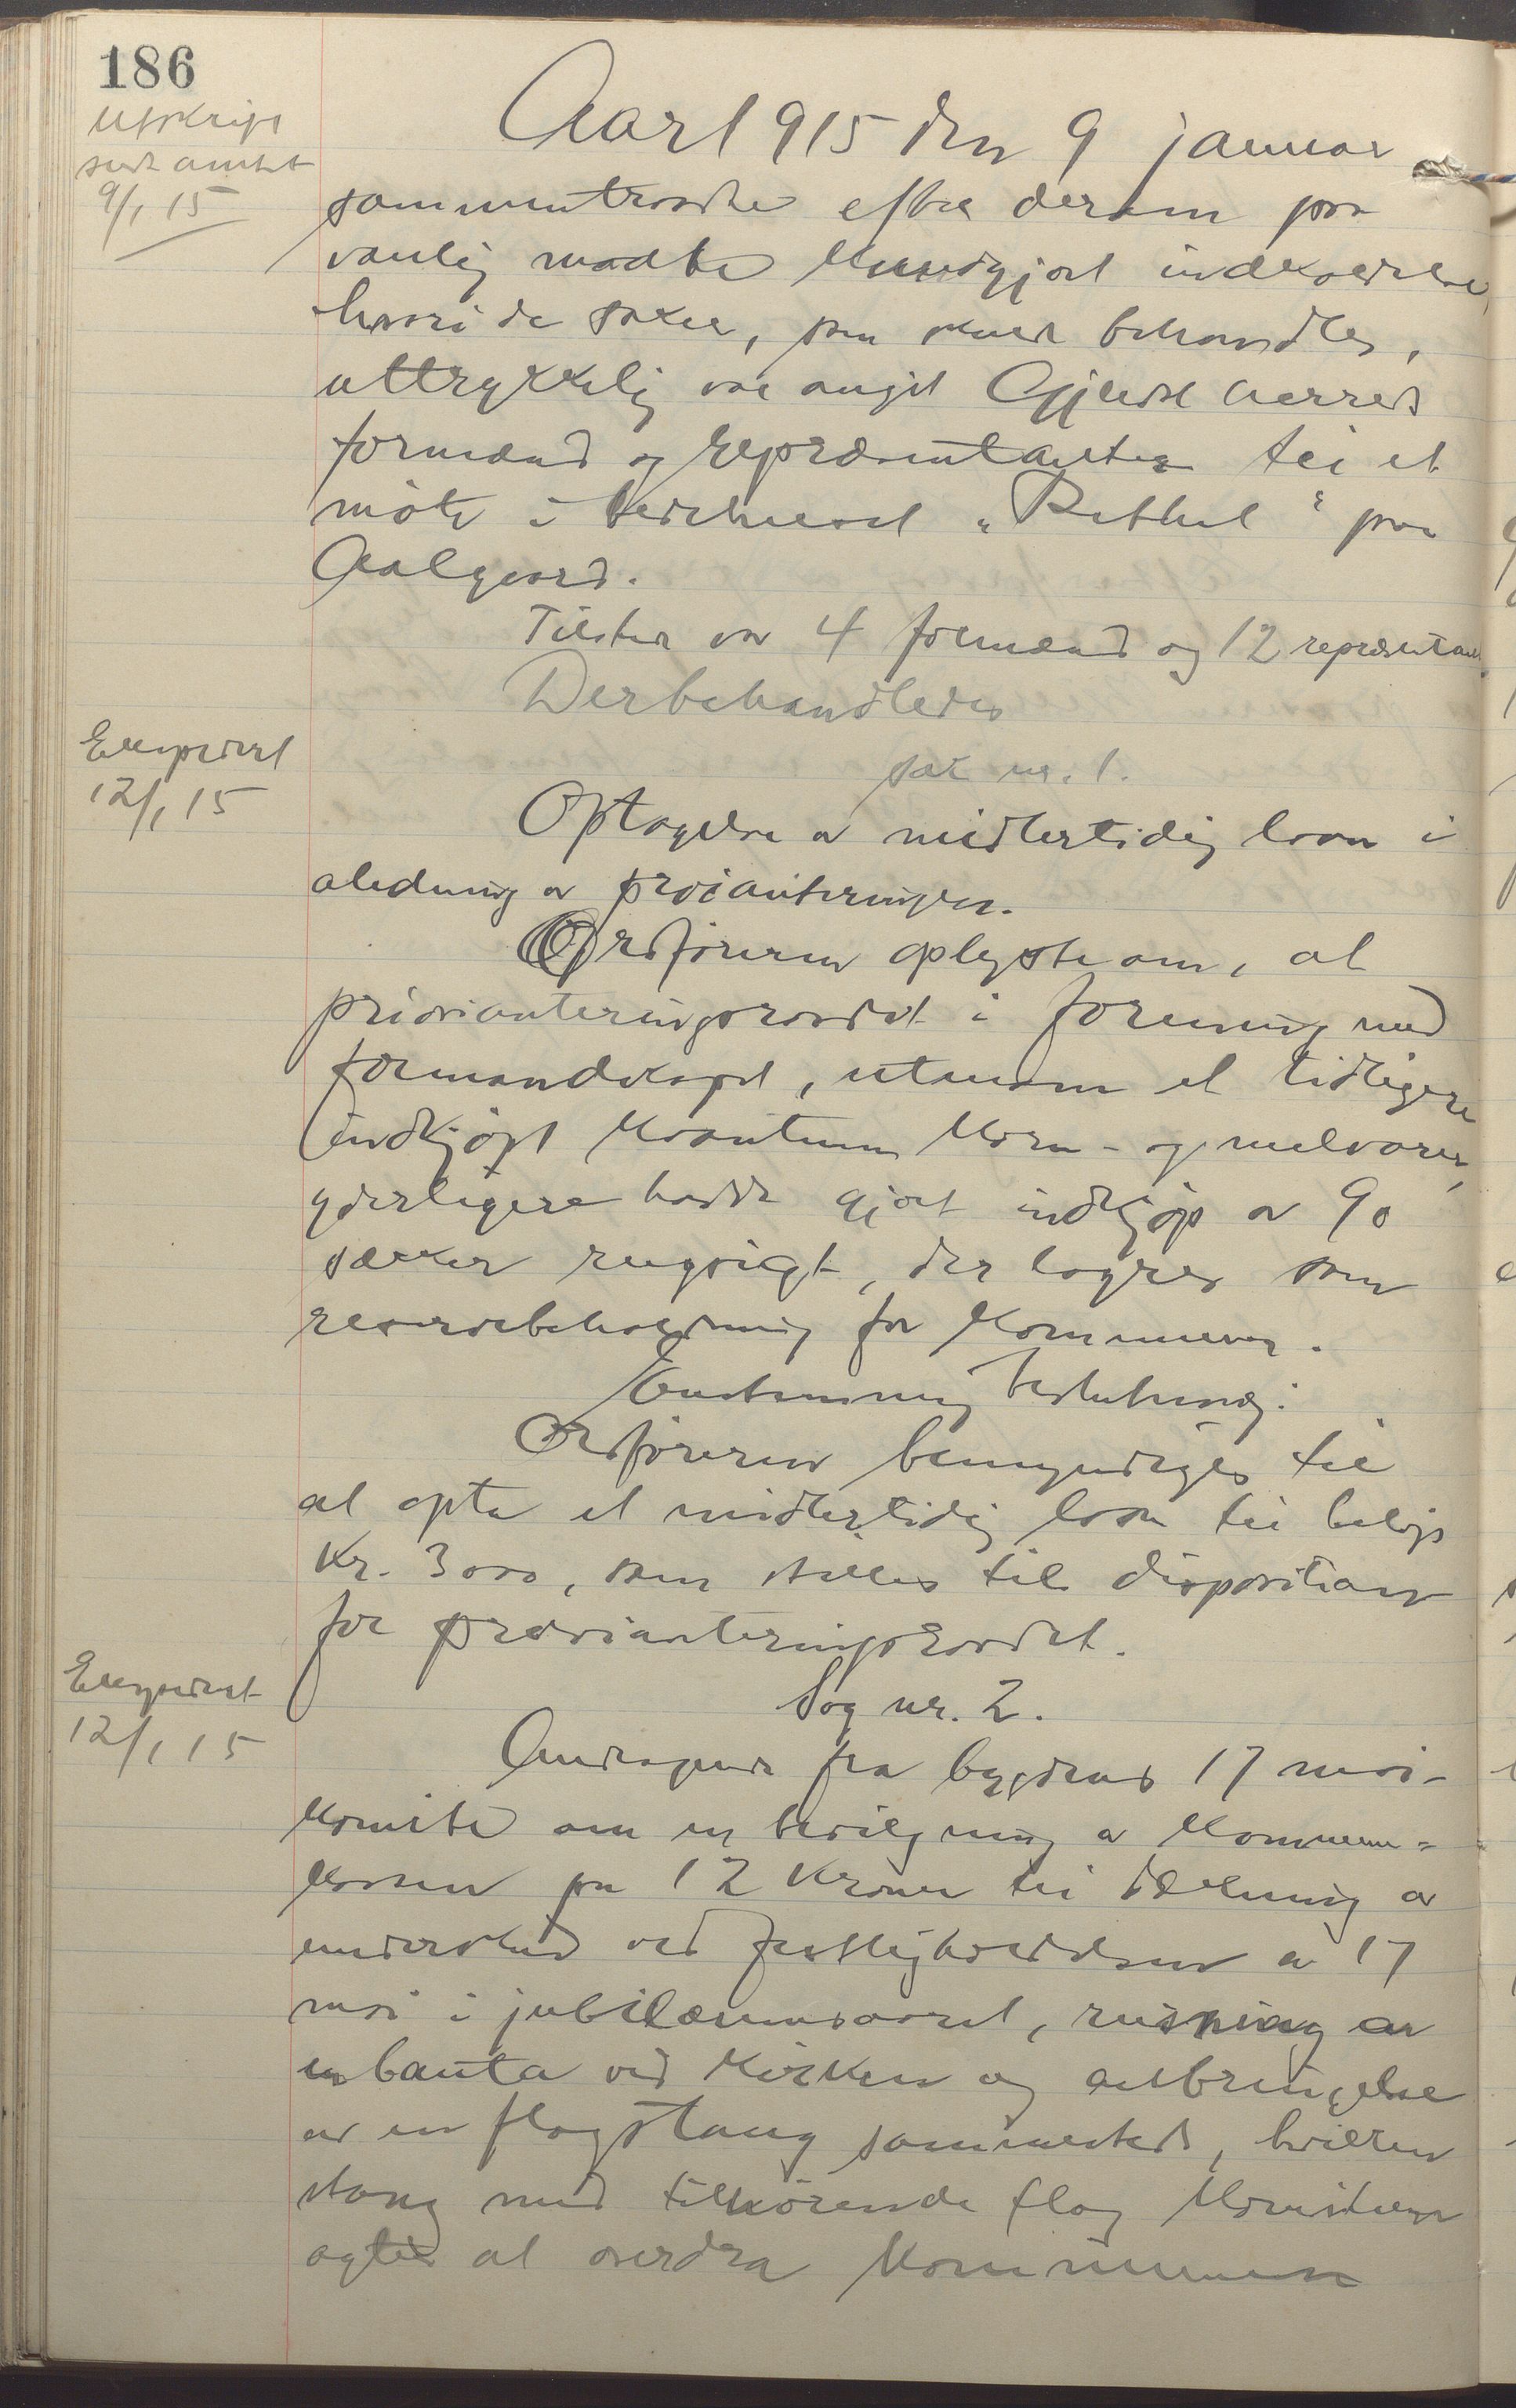 186
Utskrift
sendt amtet
9/1 15
Aar 1915 den 9 januar
sammentraadte efter derom paa
vanlig maate kundgjort indkaldelse,
hvori de saker, som skulde behandles,
uttrykkelig var angit Gjesdal herreds
formænd og repræsentanter til et
møte i bedehuset "Bethel" paa
Aalgaard.
Tilstede var 4 formænd og 12 repræsentanter.
Der behandledes
Ekspedert
12/1 15
sak nr. 1.
Optagelse av midlertidig laan i
aledning av provianteringen.
Ordføreren oplyste om, at
provianteringsraadet i forening med
formandskapet, utenom et tidligere
indkjøpt kvantum korn- og melvarer,
yderligere hadde gjort indkjøp av 90
sækker rugsigt, der lagres som
reservebeholdning for kommunen.
Enstemmig beslutning:
Ordføreren bemyndiges til
at opta et midlertidig laan til beløp
Kr. 3000, som stilles til disposition
for provianteringsraadet.
Ekspedert
12/1 15
Sag nr. 2.
Andragende fra bygdens 17 mai-
komite om en bevilgning av kommune-
kassen paa 12 kroner til dækning av
underskud ved festligholdelsen av 17
mai i jubilæumsaaret, reisning av
en bauta ved kirken og anbringelse
av en flagstang sammesteds, hvilken
stang med tilhørende flag komiteen
agter at overdra kommunen